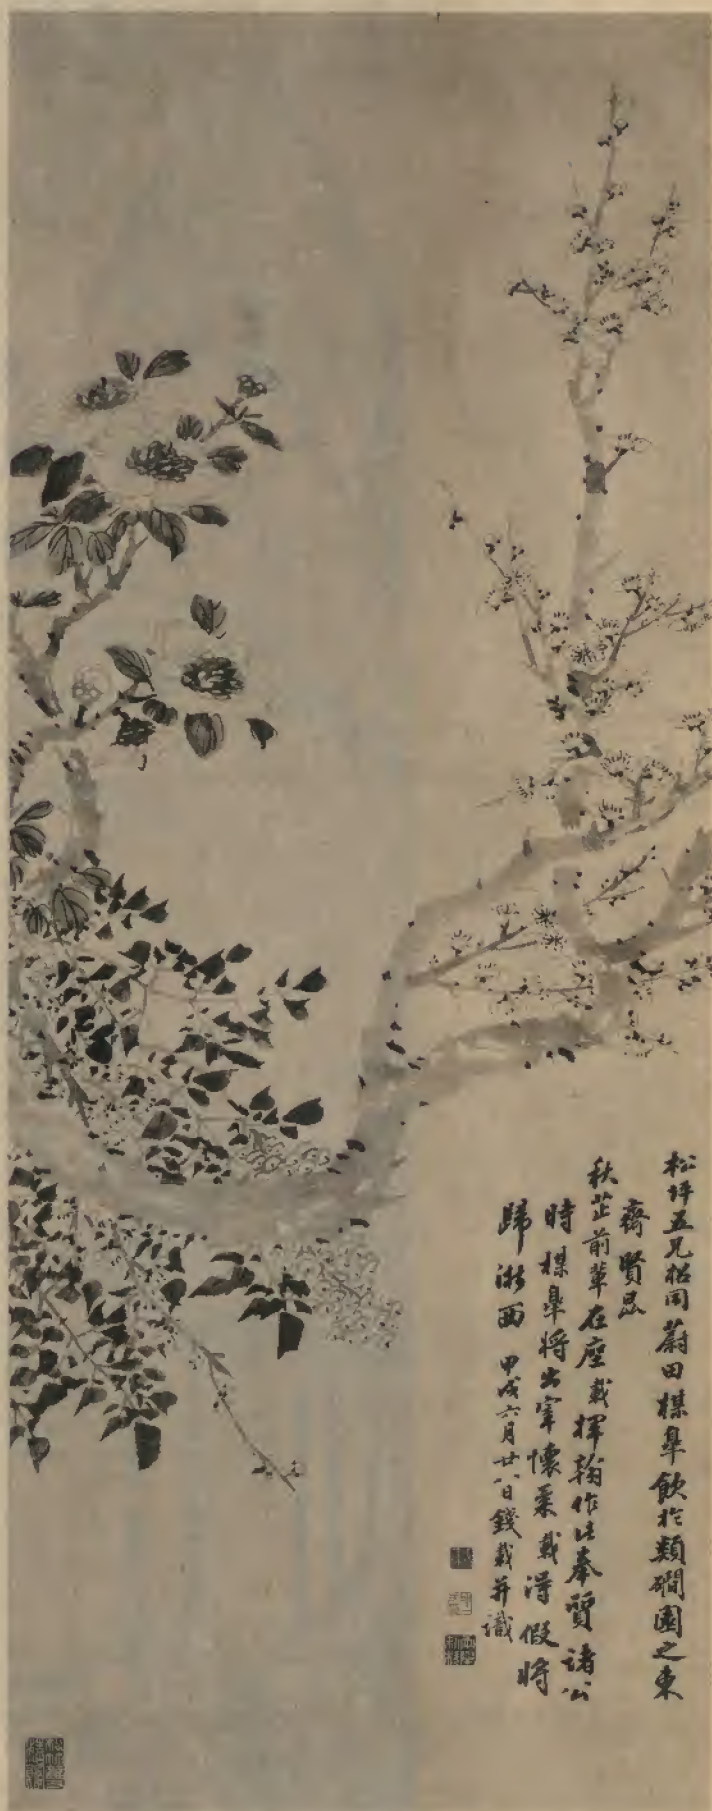 松坪五兄招同蔚田楳皐飲於類磵園之東
齋賢昆
秋芷前輩在座載揮翰作此奉質諸公
時楳皐將出宰懷柔載得假將
歸浙西 甲戌六月廿八日錢載并識